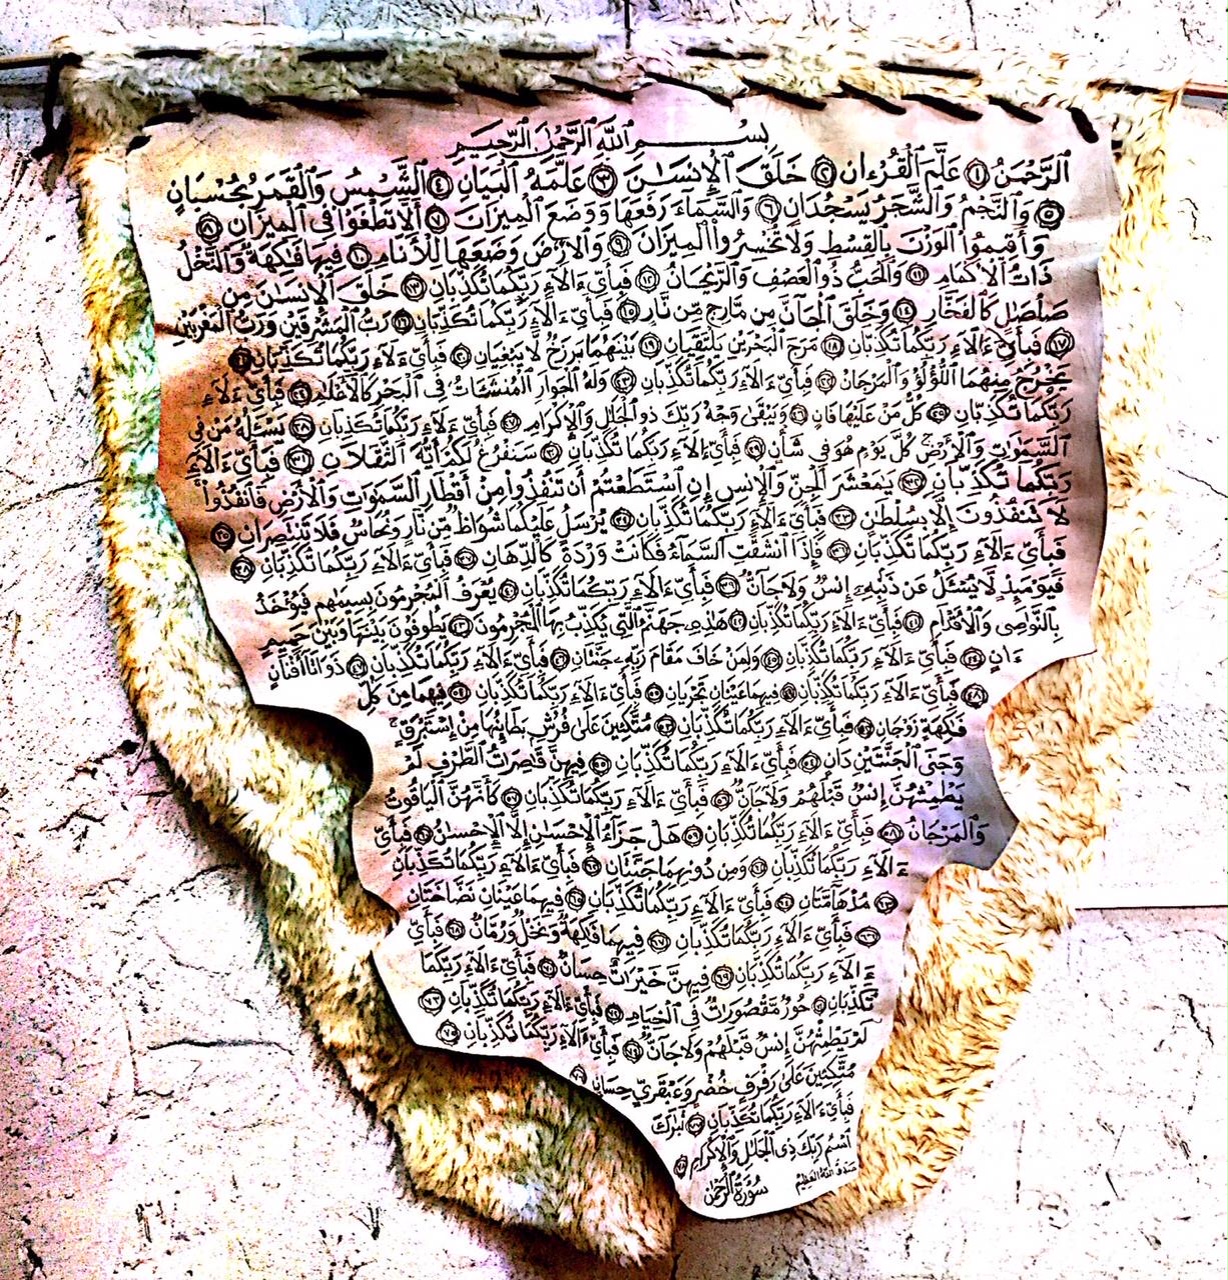 بِسْمِ ٱللَّهِ ٱلرَّحْمَٰنِ ٱلرَّحِيمِ
ٱلرَّحْمَٰنُ ١ عَلَّمَ ٱلْقُرْءَانَ ٢ خَلَقَ ٱلْإِنسَٰنَ ٣ عَلَّمَهُ ٱلْبَيَانَ ٤ ٱلشَّمْسُ وَٱلْقَمَرُ بِحُسْبَانٍ
٥ وَٱلنَّجْمُ وَٱلشَّجَرُ يَسْجُدَانِ ٦ وَٱلسَّمَآءَ رَفَعَهَا وَوَضَعَ ٱلْمِيزَانَ ٧ أَلَّا تَطْغَوْا۟ فِى ٱلْمِيزَانِ ٨
وَأَقِيمُوا۟ ٱلْوَزْنَ بِٱلْقِسْطِ وَلَا تُخْسِرُوا۟ ٱلْمِيزَانَ ٩ وَٱلْأَرْضَ وَضَعَهَا لِلْأَنَامِ ١٠ فِيهَا فَٰكِهَةٌ وَٱلنَّخْلُ
ذَاتُ ٱلْأَكْمَامِ ١١ وَٱلْحَبُّ ذُو ٱلْعَصْفِ وَٱلرَّيْحَانُ ١٢ فَبِأَىِّ ءَالَآءِ رَبِّكُمَا تُكَذِّبَانِ ١٣ خَلَقَ ٱلْإِنسَٰنَ مِن
صَلْصَٰلٍ كَٱلْفَخَّارِ ١٤ وَخَلَقَ ٱلْجَآنَّ مِن مَّارِجٍ مِّن نَّارٍ ١٥ فَبِأَىِّ ءَالَآءِ رَبِّكُمَا تُكَذِّبَانِ ١٦ رَبُّ ٱلْمَشْرِقَيْنِ وَرَبُّ ٱلْمَغْرِبَيْنِ
١٧ فَبِأَىِّ ءَالَآءِ رَبِّكُمَا تُكَذِّبَانِ ١٨ مَرَجَ ٱلْبَحْرَيْنِ يَلْتَقِيَانِ ١٩ بَيْنَهُمَا بَرْزَخٌ لَّا يَبْغِيَانِ ٢٠ فَبِأَىِّ ءَالَآءِ رَبِّكُمَا تُكَذِّبَانِ ٢١
يَخْرُجُ مِنْهُمَا ٱللُّؤْلُؤُ وَٱلْمَرْجَانُ ٢٢ فَبِأَىِّ ءَالَآءِ رَبِّكُمَا تُكَذِّبَانِ ٢٣ وَلَهُ ٱلْجَوَارِ ٱلْمُنشَـَٔاتُ فِى ٱلْبَحْرِ كَٱلْأَعْلَٰمِ ٢٤ فَبِأَىِّ ءَالَآءِ
رَبِّكُمَا تُكَذِّبَانِ ٢٥ كُلُّ مَنْ عَلَيْهَا فَانٍ ٢٦ وَيَبْقَىٰ وَجْهُ رَبِّكَ ذُو ٱلْجَلَٰلِ وَٱلْإِكْرَامِ ٢٧ فَبِأَىِّ ءَالَآءِ رَبِّكُمَا تُكَذِّبَانِ ٢٨ يَسْـَٔلُهُ مَن فِى
ٱلسَّمَٰوَٰتِ وَٱلْأَرْضِ كُلَّ يَوْمٍ هُوَ فِى شَأْنٍ ٢٩ فَبِأَىِّ ءَالَآءِ رَبِّكُمَا تُكَذِّبَانِ ٣٠ سَنَفْرُغُ لَكُمْ أَيُّهَ ٱلثَّقَلَانِ ٣١ فَبِأَىِّ ءَالَآءِ
رَبِّكُمَا تُكَذِّبَانِ ٣٢ يَٰمَعْشَرَ ٱلْجِنِّ وَٱلْإِنسِ إِنِ ٱسْتَطَعْتُمْ أَن تَنفُذُوا۟ مِنْ أَقْطَارِ ٱلسَّمَٰوَٰتِ وَٱلْأَرْضِ فَٱنفُذُوا۟
لَا تَنفُذُونَ إِلَّا بِسُلْطَٰنٍ ٣٣ فَبِأَىِّ ءَالَآءِ رَبِّكُمَا تُكَذِّبَانِ ٣٤ يُرْسَلُ عَلَيْكُمَا شُوَاظٌ مِّن نَّارٍ وَنُحَاسٌ فَلَا تَنتَصِرَانِ ٣٥
فَبِأَىِّ ءَالَآءِ رَبِّكُمَا تُكَذِّبَانِ ٣٦ فَإِذَا ٱنشَقَّتِ ٱلسَّمَآءُ فَكَانَتْ وَرْدَةً كَٱلدِّهَانِ ٣٧ فَبِأَىِّ ءَالَآءِ رَبِّكُمَا تُكَذِّبَانِ ٣٨
فَيَوْمَئِذٍ لَّا يُسْـَٔلُ عَن ذَنۢبِهِۦٓ إِنسٌ وَلَا جَآنٌّ ٣٩ فَبِأَىِّ ءَالَآءِ رَبِّكُمَا تُكَذِّبَانِ ٤٠ يُعْرَفُ ٱلْمُجْرِمُونَ بِسِيمَٰهُمْ فَيُؤْخَذُ
بِٱلنَّوَٰصِى وَٱلْأَقْدَامِ ٤١ فَبِأَىِّ ءَالَآءِ رَبِّكُمَا تُكَذِّبَانِ ٤٢ هَٰذِهِۦ جَهَنَّمُ ٱلَّتِى يُكَذِّبُ بِهَا ٱلْمُجْرِمُونَ ٤٣ يَطُوفُونَ بَيْنَهَا وَبَيْنَ حَمِيمٍ
ءَانٍ ٤٤ فَبِأَىِّ ءَالَآءِ رَبِّكُمَا تُكَذِّبَانِ ٤٥ وَلِمَنْ خَافَ مَقَامَ رَبِّهِۦ جَنَّتَانِ ٤٦ فَبِأَىِّ ءَالَآءِ رَبِّكُمَا تُكَذِّبَانِ ٤٧ ذَوَاتَآ أَفْنَانٍ
٤٨ فَبِأَىِّ ءَالَآءِ رَبِّكُمَا تُكَذِّبَانِ ٤٩ فِيهِمَا عَيْنَانِ تَجْرِيَانِ ٥٠ فَبِأَىِّ ءَالَآءِ رَبِّكُمَا تُكَذِّبَانِ ٥١ فِيهِمَا مِن كُلِّ
فَٰكِهَةٍ زَوْجَانِ ٥٢ فَبِأَىِّ ءَالَآءِ رَبِّكُمَا تُكَذِّبَانِ ٥٣ مُتَّكِـِٔينَ عَلَىٰ فُرُشٍۭ بَطَآئِنُهَا مِنْ إِسْتَبْرَقٍ
وَجَنَى ٱلْجَنَّتَيْنِ دَانٍ ٥٤ فَبِأَىِّ ءَالَآءِ رَبِّكُمَا تُكَذِّبَانِ ٥٥ فِيهِنَّ قَٰصِرَٰتُ ٱلطَّرْفِ لَمْ
يَطْمِثْهُنَّ إِنسٌ قَبْلَهُمْ وَلَا جَآنٌّ ٥٦ فَبِأَىِّ ءَالَآءِ رَبِّكُمَا تُكَذِّبَانِ ٥٧ كَأَنَّهُنَّ ٱلْيَاقُوتُ
وَٱلْمَرْجَانُ ٥٨ فَبِأَىِّ ءَالَآءِ رَبِّكُمَا تُكَذِّبَانِ ٥٩ هَلْ جَزَآءُ ٱلْإِحْسَٰنِ إِلَّا ٱلْإِحْسَٰنُ ٦٠ فَبِأَىِّ
ءَالَآءِ رَبِّكُمَا تُكَذِّبَانِ ٦١ وَمِن دُونِهِمَا جَنَّتَانِ ٦٢ فَبِأَىِّ ءَالَآءِ رَبِّكُمَا تُكَذِّبَانِ
٦٣ مُدْهَآمَّتَانِ ٦٤ فَبِأَىِّ ءَالَآءِ رَبِّكُمَا تُكَذِّبَانِ ٦٥ فِيهِمَا عَيْنَانِ نَضَّاخَتَانِ
٦٦ فَبِأَىِّ ءَالَآءِ رَبِّكُمَا تُكَذِّبَانِ ٦٧ فِيهِمَا فَٰكِهَةٌ وَنَخْلٌ وَرُمَّانٌ ٦٨ فَبِأَىِّ
ءَالَآءِ رَبِّكُمَا تُكَذِّبَانِ ٦٩ فِيهِنَّ خَيْرَٰتٌ حِسَانٌ ٧٠ فَبِأَىِّ ءَالَآءِ رَبِّكُمَا
تُكَذِّبَانِ ٧١ حُورٌ مَّقْصُورَٰتٌ فِى ٱلْخِيَامِ ٧٢ فَبِأَىِّ ءَالَآءِ رَبِّكُمَا تُكَذِّبَانِ ٧٣
لَمْ يَطْمِثْهُنَّ إِنسٌ قَبْلَهُمْ وَلَا جَآنٌّ ٧٤ فَبِأَىِّ ءَالَآءِ رَبِّكُمَا تُكَذِّبَانِ ٧٥
مُتَّكِـِٔينَ عَلَىٰ رَفْرَفٍ خُضْرٍ وَعَبْقَرِىٍّ حِسَانٍ ٧٦
فَبِأَىِّ ءَالَآءِ رَبِّكُمَا تُكَذِّبَانِ ٧٧ تَبَٰرَكَ
ٱسْمُ رَبِّكَ ذِى ٱلْجَلَٰلِ وَٱلْإِكْرَامِ ٧٨
صَدَقَ ٱللَّهُ ٱلْعَظِيمُ
سُورَةُ ٱلرَّحْمَٰن